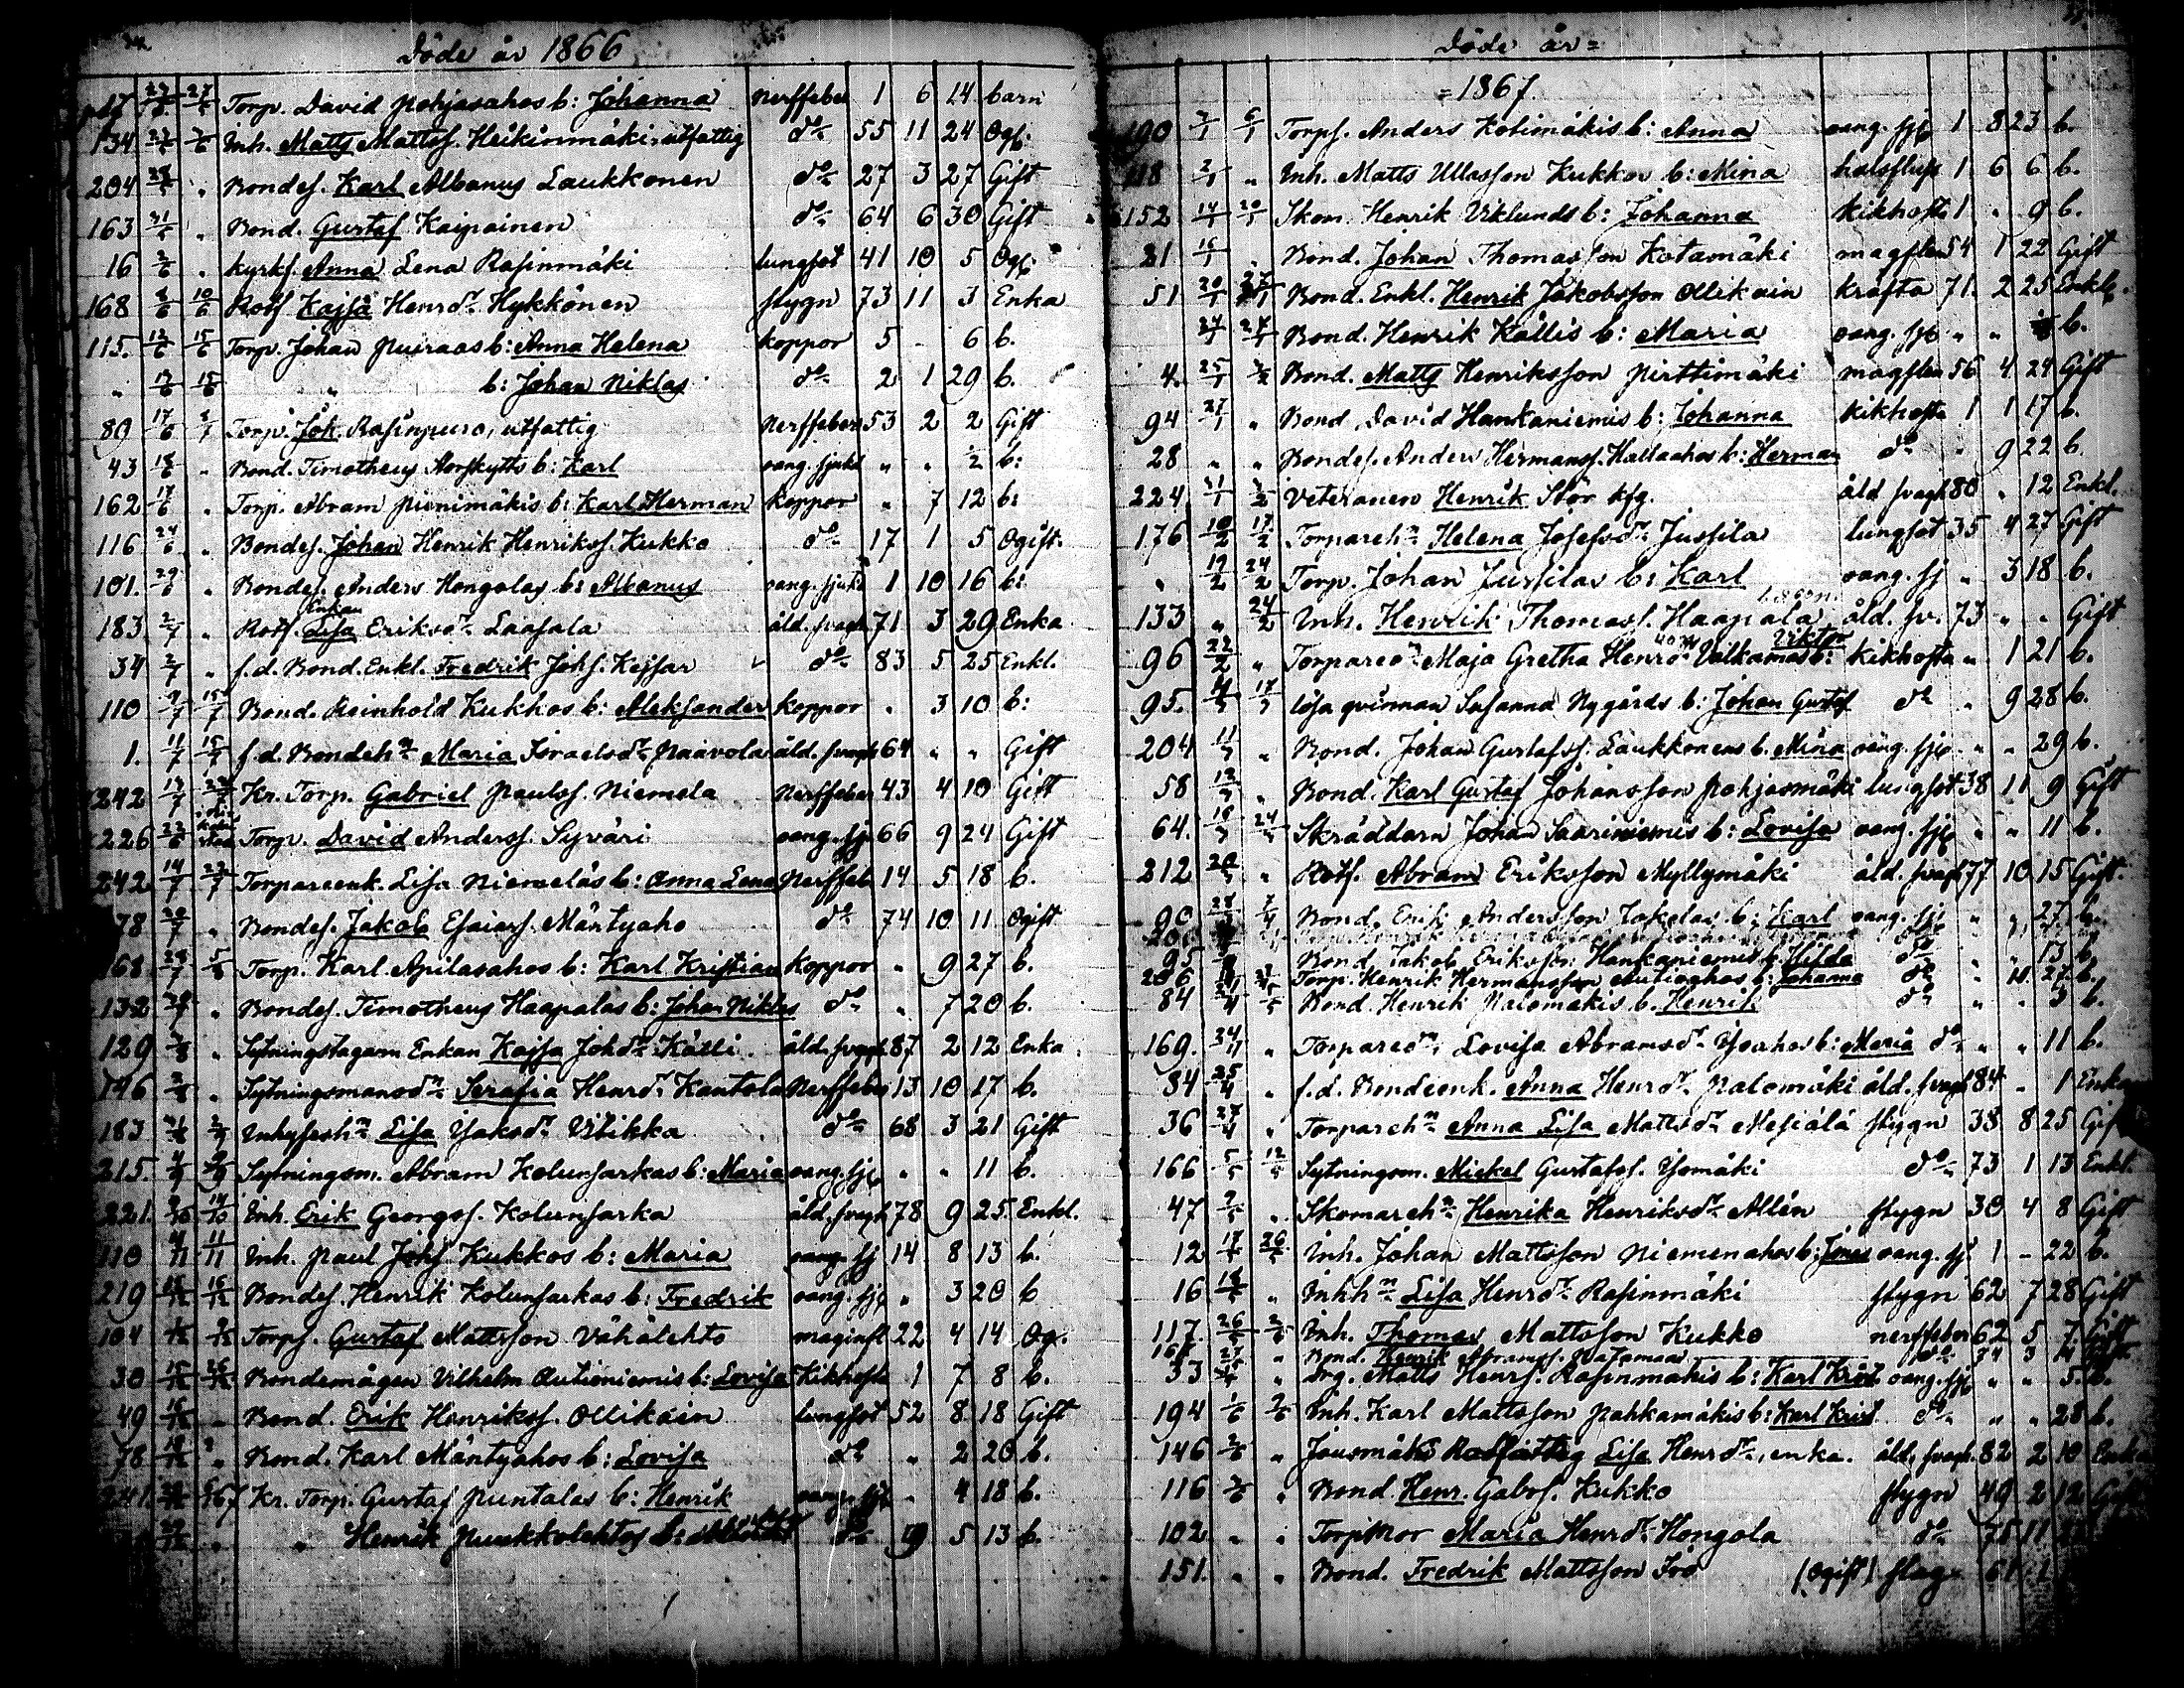 Döde år 1866
17 27/5 27/5 Torp. David Pohjasahos b: Johanna Nerffeber 1 6 14 barn
134 Inh. Matts Mattsf. Heikinmäki, utfattig do 55 11 24 Ogf.
204 Bondes. Karl Albanus Laukkonen do 27 3 27 Gift
163 31/5 " Bond. Gustaf Kaipainen do 64 6 30 Gift
16 2/6 " Kyrkf. Anna Lena Rasinmäki lungsot 41 10 5 Ogf
168 8/6 10/6 Rotf Kajsa Henrdr Hykkönen stygn 73 11 3 Enka
115. 12/6 15/6 Torp. Johan Puiraas b: Anna Helena koppor 5 - 6 b.
" 13/6 15/6 " b: Johan Niklas do 2 1 29 b.
89 17/6 1/7 Torp. Joh. Rasinpuro, utfattig Nerffeber 53 2 2 Gift
43 18/6 " Bond. Timotheus Storskytts b: Karl oang. sjukd " " 1/2 b:
162 17/6 " Torp. Abram Pienimäkis b: Karl Herman Koppor " 7 12 b:
116 24/6 " Bondes. Johan Henrik Henriksf. Kukko do 17 1 5 Ogift.
101. 29/6 " Bondes. Anders Hongolas b: Albanus oang. sjukd 1 10 16 b:
183 2/7 " Rotf. Enkan Lisa Eriksdr Laasala åld. svagh 71 3 29 Enka
34 2/7 " f.d. Bond. Enkl. Fredrik Johf. Kejsar do 83 5 25 Enkl.
110 9/7 15/7 Bond. Reinhold Kukkos b: Aleksander koppor . 3 10 b:
1. 11/7 15/7 f.d. Bondehn Maria Israelsdr Paavola åld. svagh 64 " " Gift
242 13/7 22/7 Kr. Torp. Gabriel Paulsf. Niemela Nerffeber 43 4 10 Gift
226 Torp. David Andersf. Syväri oang. sj. 66 9 24 Gift
242 14/7 22/7 Torpareenk. Lisa Niemeläs b: Anna Lena Nerffeb 14 5 18 b.
78 20/7 " Bondes. Jakob Esaiasf. Mäntyaho do 74 10 11 Ogift
168 28/7 5/8 Torp. Karl Apilasahos b: Karl Kristian Koppor " 9 27 b.
132 " Bondes. Timotheus Haapalas b: Johan Niklas do " 7 20 b.
129 " Sytningstagarn Enkan Kajsa Johdr Källi åld. svagh 87 2 12 Enka
146 " Sytningsmansdr Serafia Henrdr Kantola Nerffeber 13 10 17 b.
183 31/8 2/9 Inhyseshn Lisa Isaksdr Viikka do 68 3 21 Gift
215. 4/9 9/9 Sytningsm. Abram Kolunsarkas b: Maria oang. sj. " " 11 b.
221. 9/10 14/10 Inh. Erik Georgsf. Kolunsarka åld. svagh 78 9 25 Enkl.
110 4/11 11/11 Inh. Paul Johf. Kukkos b: Maria oang. sj 14 8 13 b.
219 15/12 16/12 Bondes. Henrik Kolunsarkas b: Fredrik oang. sj. " 3 20 b
104 Torpf. Gustaf Mattsson Vähälehto maginfl 22 4 14 Og.
30 Bondemågen Vilhelm Autioniemis b: Lovisa Kikhosta 1 7 8 b.
49 " Bond. Erik Henriksf. Ollikain lungsot 52 8 18 Gift
78 " Bond. Karl Mäntyahos b: Lovisa do " 2 20 b.
241. Kr. Torp. Gustaf Puntalas b: Henrik oang. sj. " 4 18 b.
" Henrik Puukkolehtos b: do 19 5 13 b.
Döde år =
= 1867.
190 3/1 6/1 Torpf. Anders Kotimäkis b: Anna oang. sj. 1 8 23 b.
118 2/1 " Inh. Matts Ullasson Kukkos b: Mina halsfluss 1 6 6 b.
152 14/1 20/1 Skom. Henrik Viklunds b: Johanna kikhosta 1 " 9 b.
21 15/1 " Bond. Johan Thomasson Kotamäki magflen 54 1 22 Gift
51 20/1 27/1 Bond. Enkl. Henrik Jakobsson Ollikain kräfta 71. 2 25 Enkl.
27/1 Bond. Henrik Källis b: Maria oang. sj. " " b.
4. 25/1 3/2 Bond. Matts Henriksson Pirttimäki magflen 56 4 24 Gift
94 27/1 " Bond. David Hankaniemis b: Johanna kikhosta 1 1 17 b.
28 " " Bondes. Anders Hermansf. Hallaahos b: Herman do " 9 22 b.
224 31/1 3/2 Veteranen Henrik Stör kfg. åld svagh 80 " 12 Enkl.
176 10/2 17/2 Torparehn Helena Josefsdr Jussila lungsot 35 4 27 Gift
" 19/2 24/2 Torp. Johan Jussilas b: Karl oang. sj " 3 18 b.
133 " 24/2 Inh. Henrik Thomasf. Haapala åld. sv. 73 " " Gift
96 22/2 " Torparedr Maja Gretha Henrdr Valkamas b: Viktor kikhosta " 1 21 b.
95. lösa qvinnan Susanna Nygårds b: Johan Gustaf do " 9 28 b.
204 11/3 " Bond. Johan Gustafsf. Laukkonens b. Mina oang. sj. " " 29 b.
58 12/3 " Bond. Karl Gustaf Johansson Pohjasmäki lungsot 38 11 9 Gift
64. 24/3 Skräddarn Johan Saariniemis b: Lovisa oang. sj. " " 11 b.
212 " Rotf. Abram Eriksson Myllymäki åld. svagh 77 10 15 Gift.
90 Bond. Erik Andersson Jokelas b: Karl oang. sj. " " 27 b.
95 Bond. Jakob Eriksson Hankaniemis b. Hilda do " " 13 b
206 Torp. Henrik Hermansson Autioahos b: Johanna do " 11 27 b.
84 Bond. Henrik Palomäkis b. Henrik do " " 3 b.
169. 24/4 " Torparedr Lovisa Abramsdr Isoahos b: Maria do " " 11 b.
84 25/4 " f.d. Bondeenk. Anna Henrdr Palomäki åld. svagh 84 - 1 Enka
36 27/4 " Torparehn Anna Lisa Mattsdr Mesiälä stygn 38 8 25 Gift
166 5/5 12/5 Sytningsm. Mickel Gustafsf. Isomäki do 73 1 13 Enkl.
47 " Skomarehn Henrika Henriksdr Allén stygn 30 4 8 Gift
12 17/5 26/5 Inh. Johan Mattsson Niemenahos b: Jonas oang. sj. 1 - 22 b.
16 18/5 " Inhhn Lisa Henrdr Rasinmäki stygn 62 7 28 Gift
117. 26/5 2/6 Inh. Thomas Mattsson Kukko nerffeber 62 5 7. Gift
Bond. Henrik Abramsf. do 74 3
33 " Drg. Matts Henrf. Rasinmäkis b: Karl Krist. oang. sj. " " 5. b.
194 Inh. Karl Mattsson Pahkamäkis b: Karl Krist. do " " 28 b.
146 " Jousmäki Rotfattig Lisa Henrdr, enka. åld. svagh. 82 2 10 Enka
116 " Bond. Henr. Gabrf. Kukko stygn 49 2 12 Gift
102 " " Torpmor Maria Henrdr Hongola do 75 11
151. " " Bond. Fredrik Mattsson Iso (Ogift) slag 61